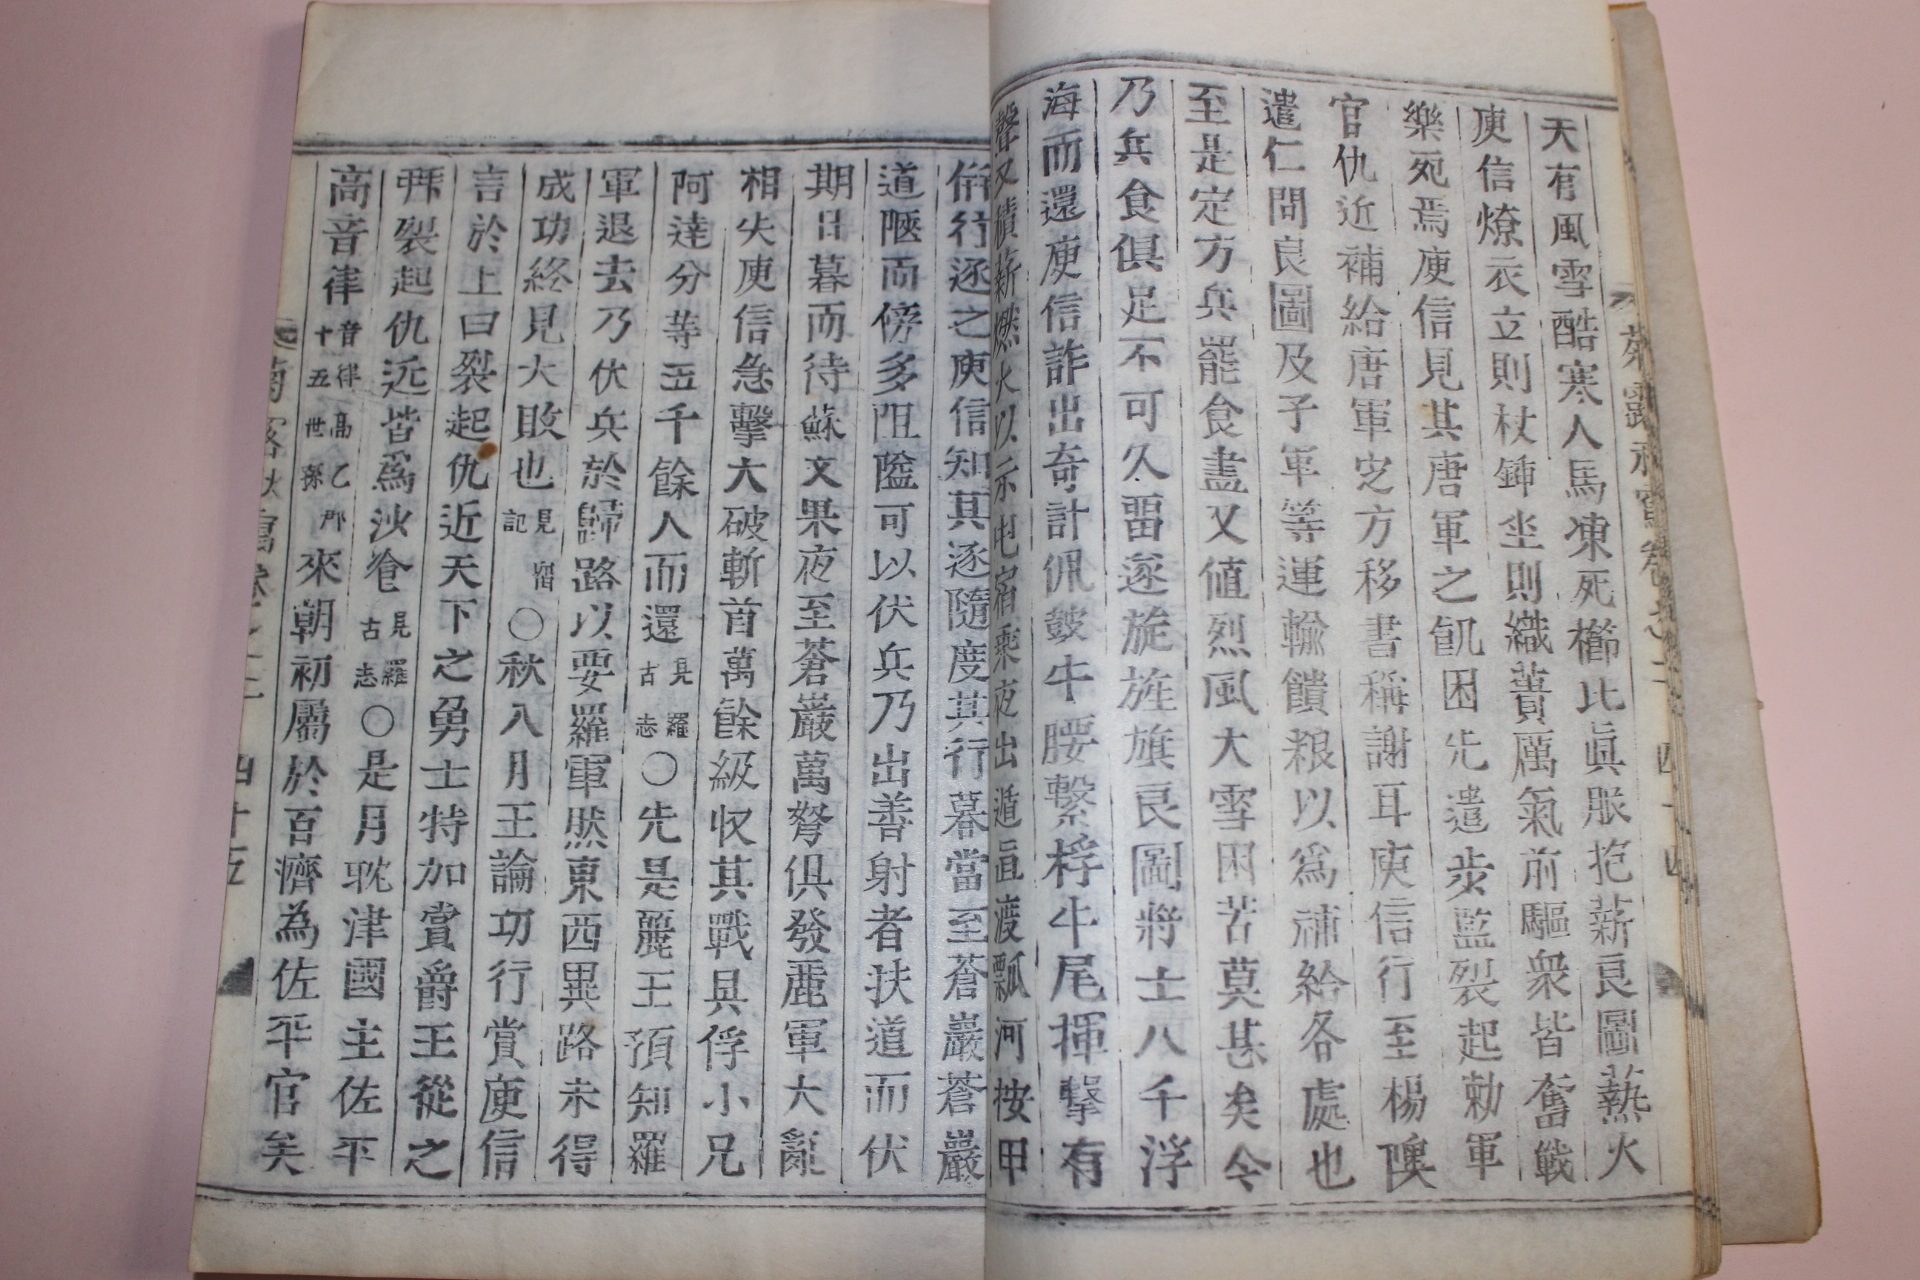 天有風雪酷寒人馬凍死櫛比眞服抱薪良圖爇火
庾信燎衣立則杖鍤坐則織蕢厲氣前驅衆皆奮戰
樂死焉庾信見其唐軍之飢困先遣步監裂起勑軍
官仇近補給唐軍定方移書稱謝耳庾信行至楊隩
遣仁問良圖及子軍等運輸饋粮以爲補給各處也
至是定方兵罷食盡又値烈風大雪困苦莫甚矣今
乃兵食俱足不可久留遂旋旌旗良圖將士八千浮
海而還庾信詐出奇計佩皷牛腰繫桴牛尾揮擊有
聲又積薪燃火以示屯宿乘夜出遁直渡瓢河按甲
偹行逐之庾信知其逐隨度其行暮當至蒼巖蒼巖
道陿而傍多阻隘可以伏兵乃出善射者扶道而伏
期日暮而待蘇文果夜至蒼巖萬弩俱發麗軍大亂
相失庾信急擊大破斬首萬餘級収其戰具俘小兄
阿達分等五千餘人而還見羅古志〇先是麗王預知羅
軍退去乃伏兵於歸路以要羅軍然東西異路未得
成功終見大敗也見留記〇秋八月王論功行賞庾信
言於上曰裂起仇近天下之勇士特加賞爵王從之
拜裂起仇近皆爲沙飡見羅古志〇是月耽津國主佐平
高音律音律高乙那十五世孫來朝初屬於百濟為佐平官矣
四十五